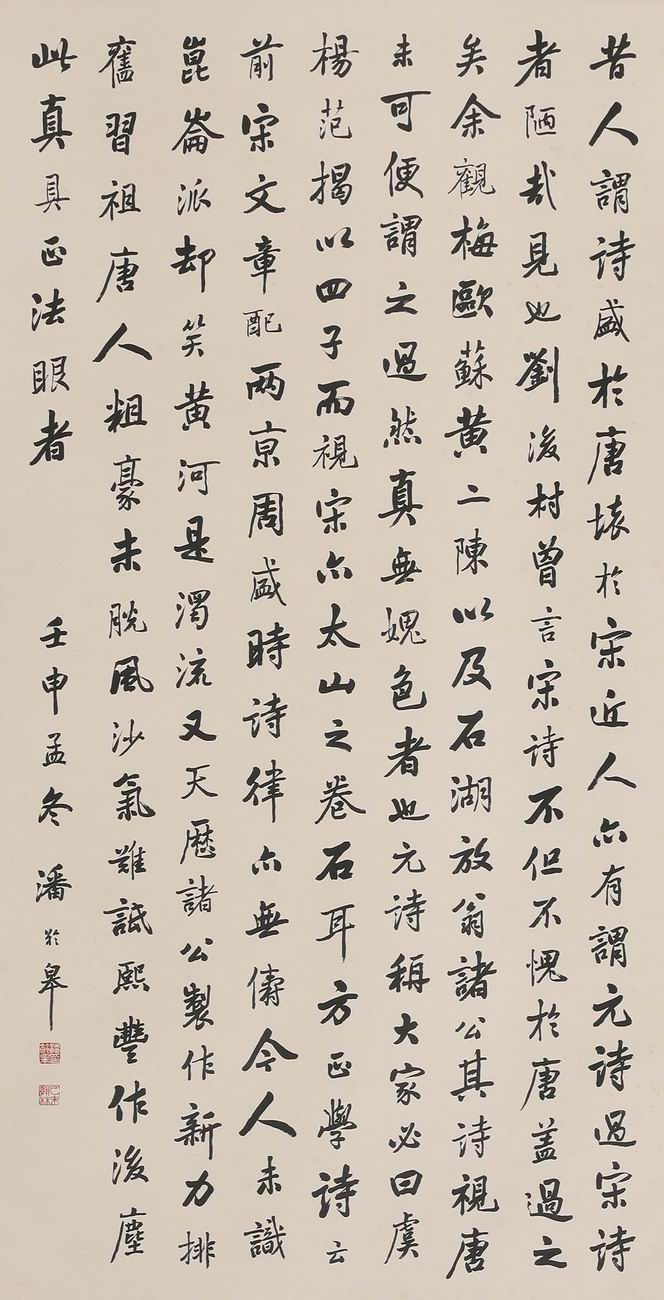 昔人謂詩盛於唐壞於宋近人亦有謂元詩過宋詩
者陋哉見也劉後村曾言宋詩不但不愧於唐蓋過之
矣余觀梅歐蘇黃二陳以及石湖放翁諸公其詩視唐
未可便謂之過然真無媿色者也元詩稱大家必曰虞
楊范揭以四子而視宋亦太山之卷石耳方正學詩云
前宋文章配兩京周盛時詩律亦無儔今人未識
崑崙派却笑黃河是濁流又天曆諸公製作新力排
舊習祖唐人粗豪未脫風沙氣難詆熙豐作後塵
此真具正法眼者
壬申孟冬潘於皋